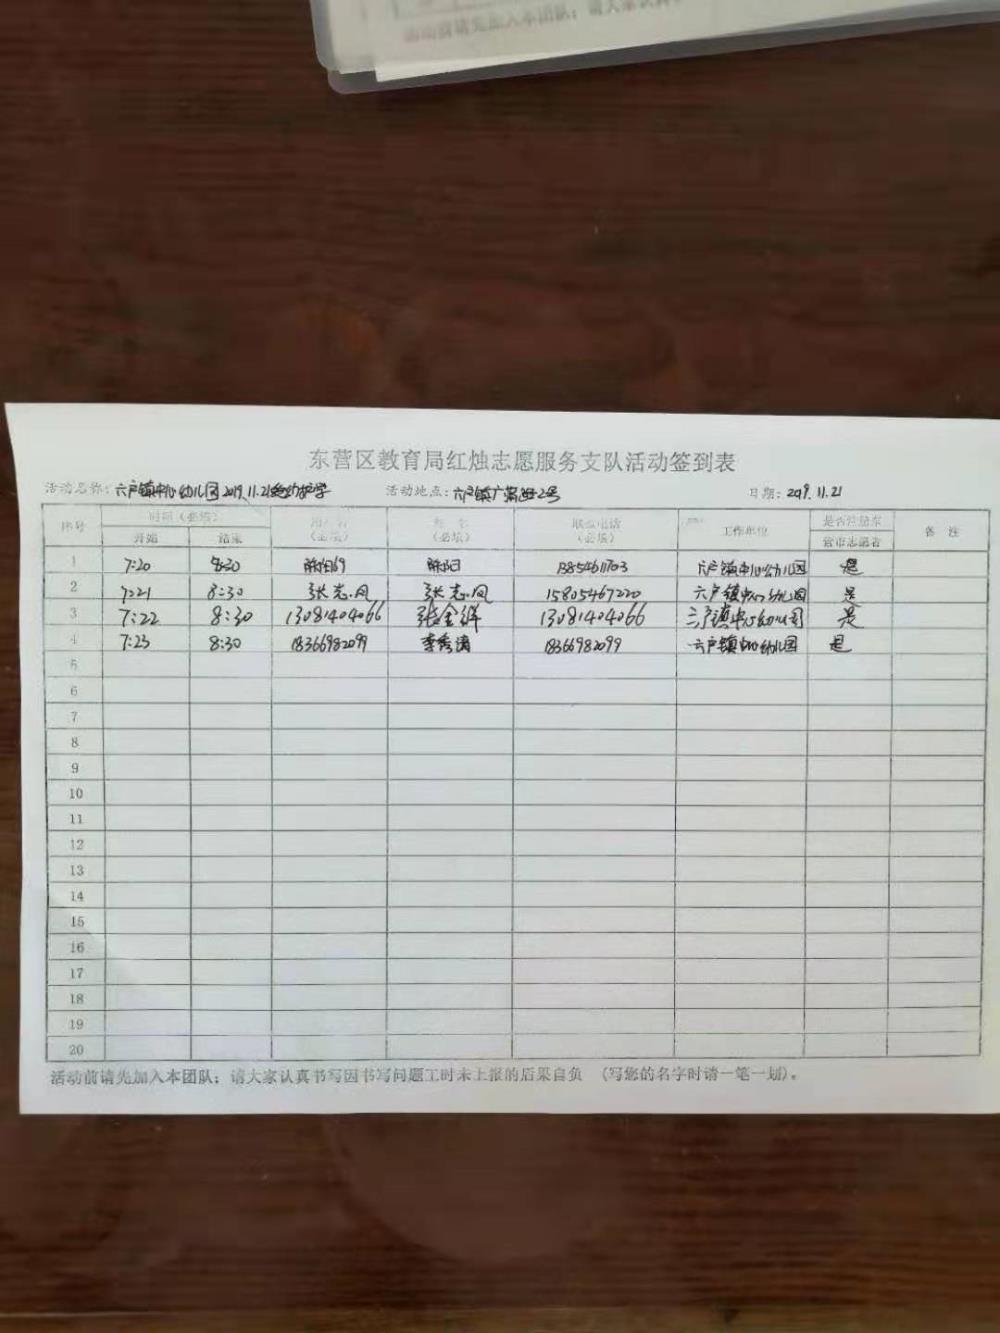 活动前请先加入本团队；请大家认真
东营区教育局红烛志愿服务支队活动签到表
活动名称：六户镇中心幼儿园2019.11.21 护学 活动地点：六户镇广 路2号 日期：2019.11.21
序号 时间（必填） 用户名 姓名 联系电话 工作单位 是否注册东 备 注
开始 结束 （必填） （必填） （必填） 营市志愿者
1 7:20 8:30 陈阳69 陈阳 13854611703 六户镇中心幼儿园 是
2 7:21 8:30 张志凤 张志凤 15805467220 六户镇中心幼儿园 是
3 7:22 8:30 13081404066 张金祥 13081404066 六户镇中心幼儿园 是
4 7:23 8:30 18366982099 李秀涛 18366982099 六户镇中心幼儿园 是
5
6
7
8
9
10
11
12
13
14
15
16
17
18
19
20
活动前请先加入本团队；请大家认真书写因书写问题工时未上报的后果自负 （写您的名字时请一笔一划）。